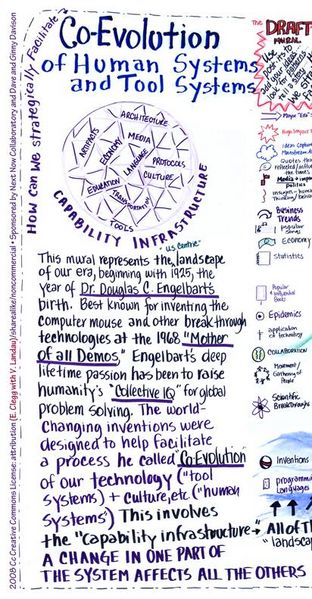 2008 CC Creative Commons License: attribution (E. Clegg with V. Landau)/sharealike/noncommercial • Sponsored by Next Now Collaboratory and Dave and Ginny Davison
How can we strategically Facilitate
Co-Evolution
of Human Systems
and Tool Systems
ARCHITECTURE
ARTIFACTS
ECONOMY
MEDIA
LANGUAGE
PROTOCOLS
CULTURE
EDUCATION
TRANSPORTATION
TOOLS
CAPABILITY INFRASTRUCTURE
"U.S. Centric"
This mural represents the landscape
of our era, beginning with 1925, the
year of Dr. Douglas C. Engelbart's
birth. Best known for inventing the
computer mouse and other breakthrough
technologies at the 1968 "Mother
of all Demos," Engelbart's deep
lifetime passion has been to raise
humanity's "Collective IQ" for global
problem solving. The world-
changing inventions were
designed to help facilitate
a process he called "Co-Evolution"
of our technology ("tool
systems) + culture, etc ("human
systems") This involves
the "capability infrastructure →
A CHANGE IN ONE PART OF
THE SYSTEM AFFECTS ALL THE OTHERS
The DRAFT
MURAL
use me to
tell a story
High Impact
Ideas
the times
Media +
politics
Business
Trends
Popular
Song
Economy
Statistics
Popular +
influential
Books
Epidemics
application
of technology
COLLABORATION
Movement/
Gathering of
People
Scientific
Breakthroughs
Inventions
programming
Languages
All of th
"landsca